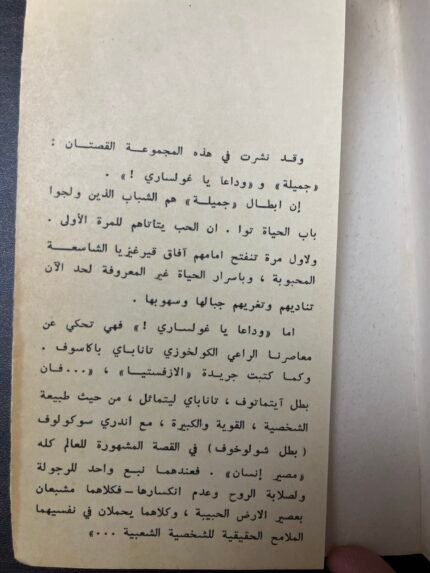 وقد نشرت في هذه المجموعة القصتان :
«جميلة» و «وداعا يا غولساري !» .
إن ابطال «جميلة» هم الشباب الذين ولجوا
باب الحياة توا . ان الحب يتاتاهم للمرة الأولى .
ولاول مرة تنفتح امامهم آفاق قيرغيزيا الشاسعة
المحبوبة ، وباسرار الحياة غير المعروفة لحد الآن
تناديهم وتغريهم جبالها وسهوبها .
اما «وداعا يا غولساري !» فهي تحكي عن
معاصرنا الراعي الكولخوزي تاناباي باكاسوف .
وكما كتبت جريدة «الازفستيا» ، «...فان
بطل آيتماتوف ، تاناباي ليتماثل ، من حيث طبيعة
الشخصية ، القوية والكبيرة ، مع اندري سوكولوف
(بطل شولوخوف) في القصة المشهورة للعالم كله
«مصير إنسان» . فعندهما نبع واحد للرجولة
ولصلابة الروح وعدم انكسارها – فكلاهما مشبعان
بعصير الارض الحبيبة ، وكلاهما يحملان في نفسيهما
الملامح الحقيقية للشخصية الشعبية ...»